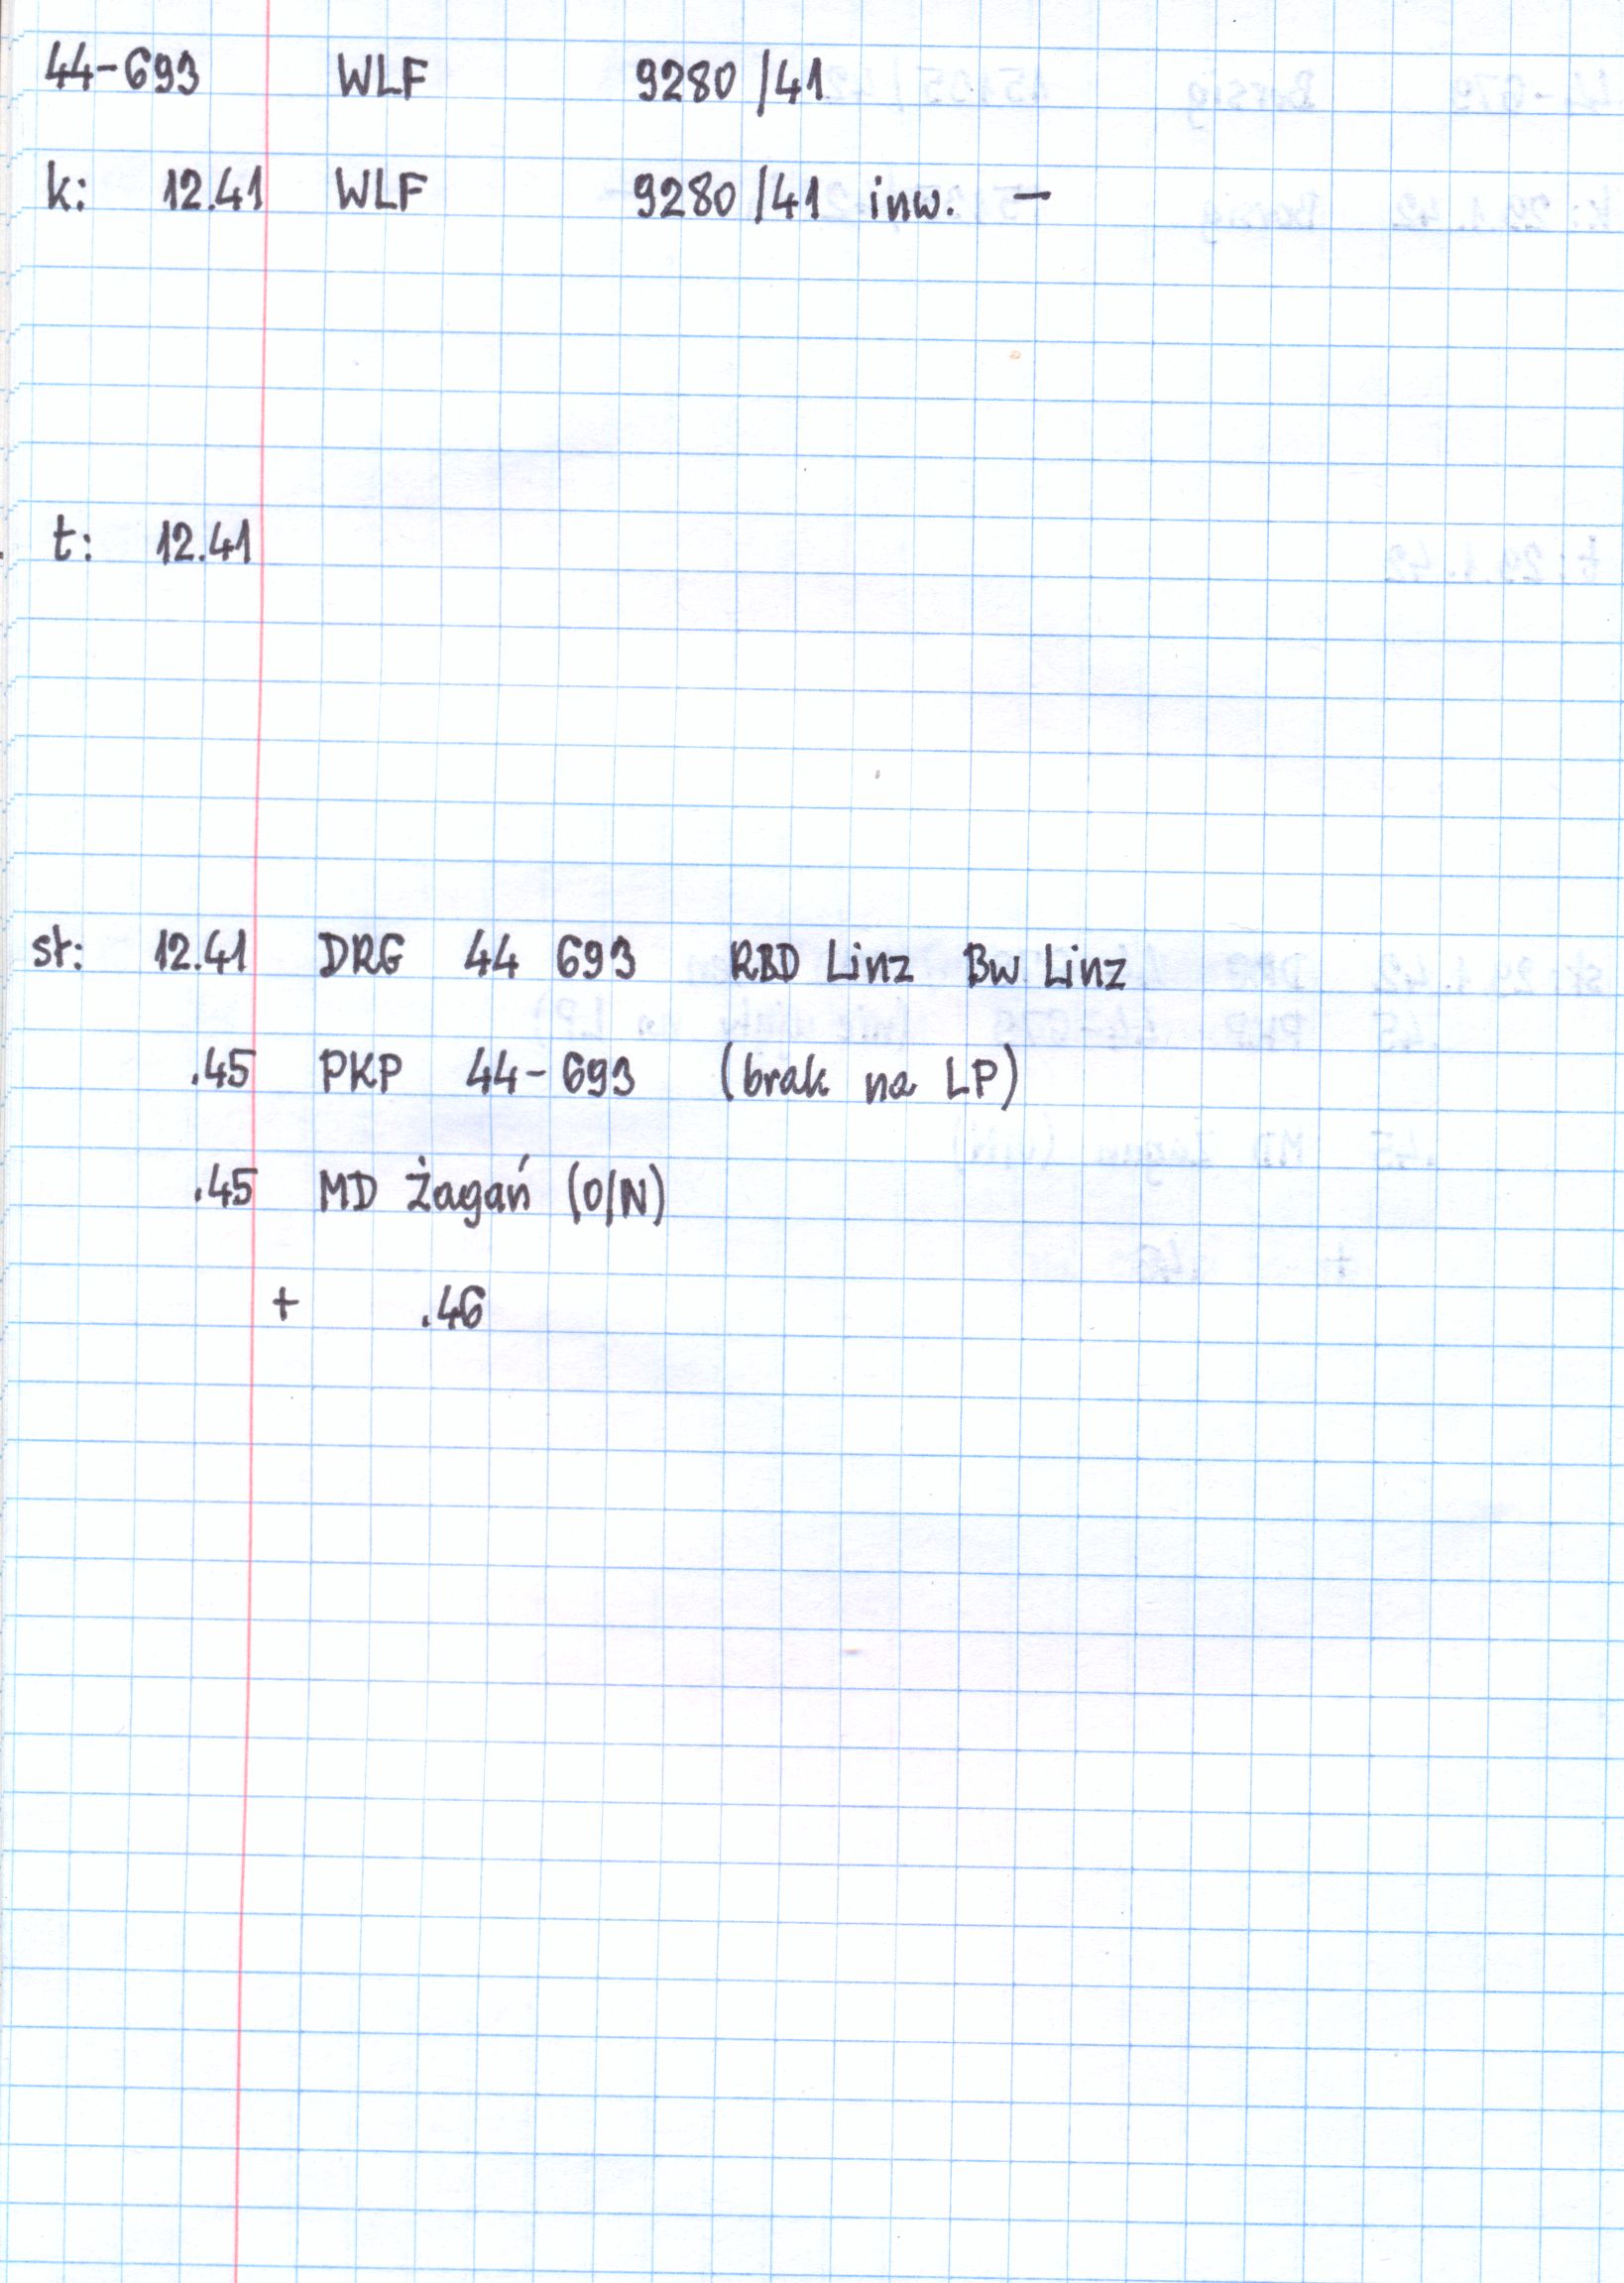 44-693 WLF 9280/41
k: 12.41 WLF 9280/41 inw. –
t: 12.41
st: 12.41 DRG 44 693 RBD Linz Bw Linz
.45 PKP 44-693 (brak na LP)
.45 MD Żagań (O/N)
+ .46